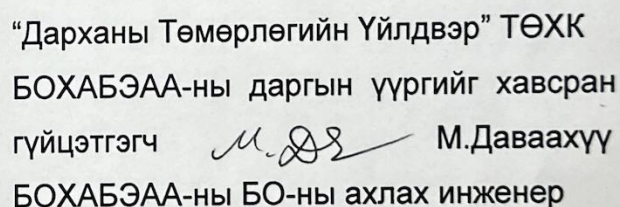 “Дарханы Төмөрлөгийн Үйлдвэр” ТӨХК
БОХАБЭАА-ны даргын үүргийг хавсран
гүйцэтгэгч М.Даваахүү
БОХАБЭАА-ны БО-ны ахлах инженер